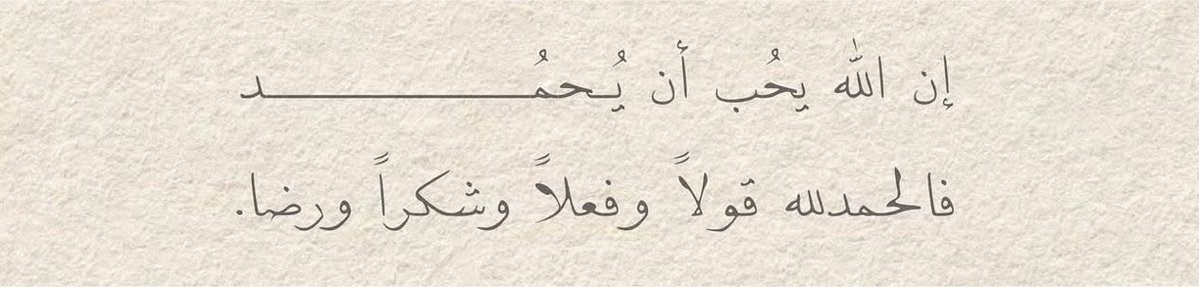 إن الله يحُب أن يُحمُـــــــــــد
فالحمدلله قولاً وفعلاً وشكراً ورضا.